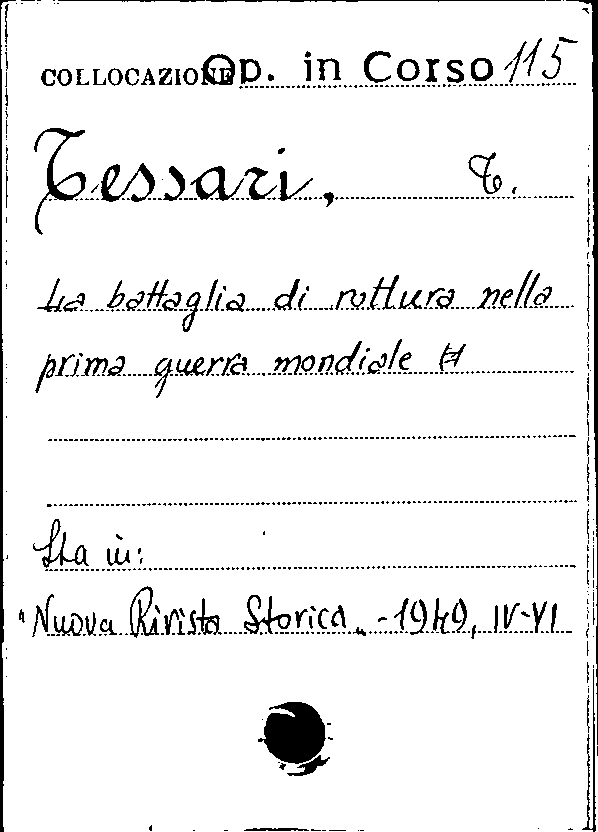 COLLOCAZIONE Op. in Corso 115
Tessari, T.
La battaglia di rottura nella
prima guerra mondiale
Sta in:
"Nuova Rivista Storica" - 1949, IV-VI